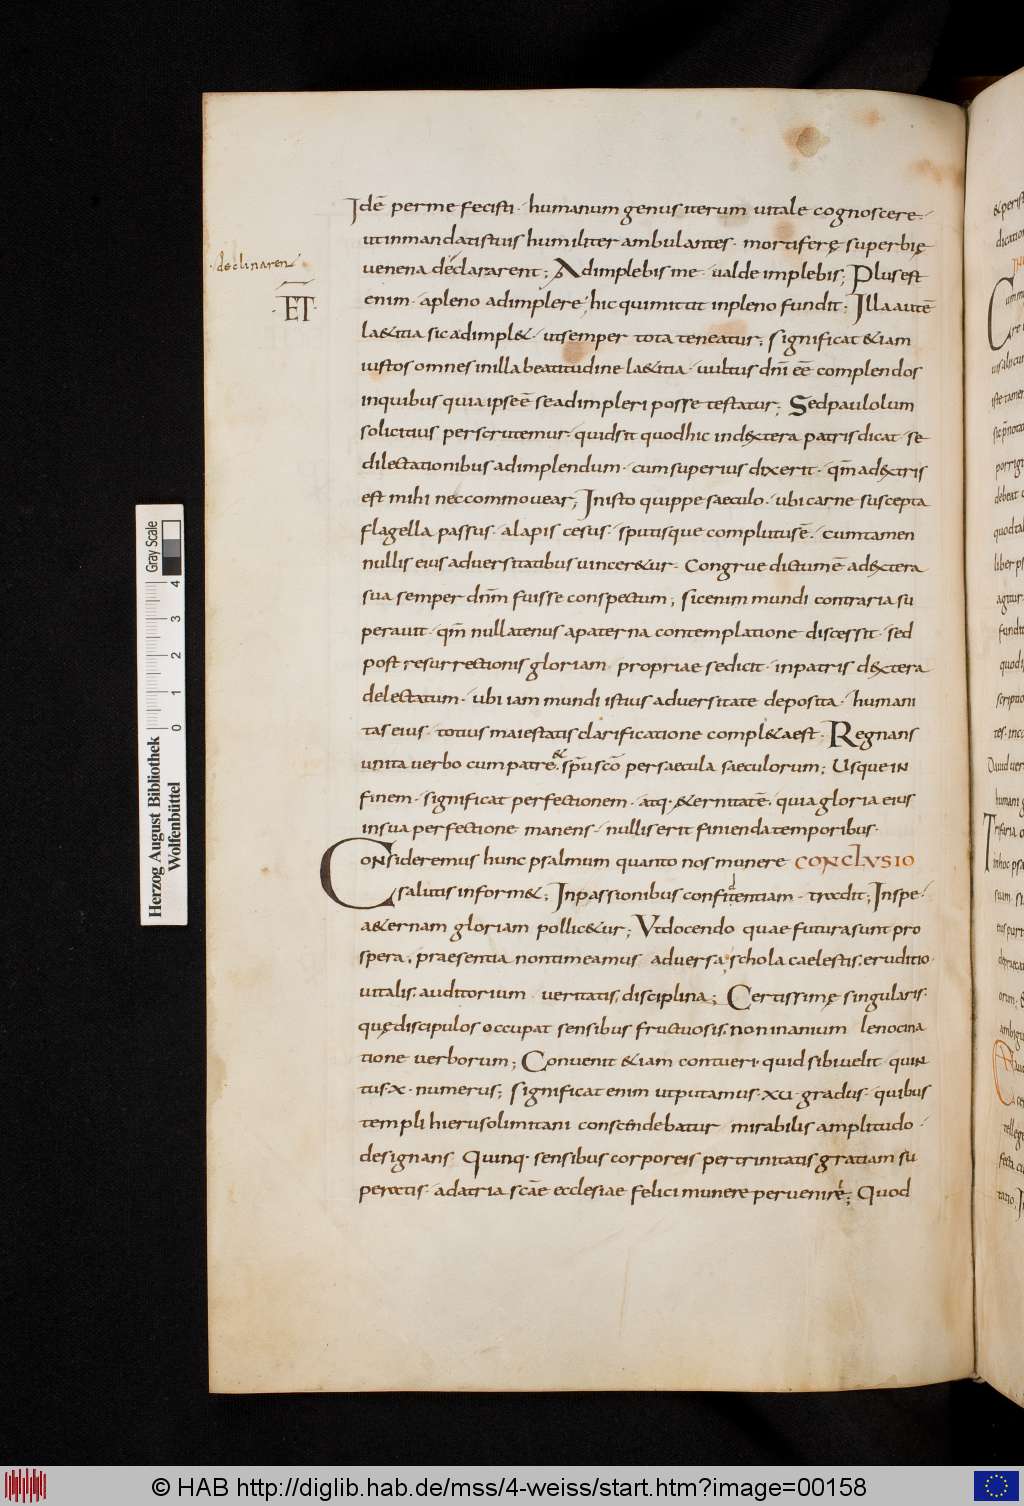 Idē perme fecisti · humanum genus iterum uitale cognoscere ·
utinmandatistuis humiliter ambulantes · mortiferę superbię
· declinaren
uenena declararent ; Adimplebis me · ualde implebis ; Plus est
· ET ·
enim · apleno adimplere , hic quimittit inpleno fundit ; Illa autē
la&itia sic adimpl& · utsemper tota teneatur ; significat &iam
iustos omnes inilla beatitudine la&itia · uultus dn̄i eē complendos
inquibus quia ipseē seadimpleri posse testatur ; Sedpaulolum
solicitius perscrutemur · quidsit quodhic indextera patris dicat · se
dilectationibus adimplendum · cumsuperius dixerit · qm̄ adextris
est mihi neccommouear ; Inisto quippe saeculo · ubi carne suscepta
flagella passus · alapis cesus · sputisque complutusē · cumtamen
nullis eius aduersitatibus uincer&ur · Congrue dictumē adextera
sua semper dnm̄ fuisse conspectum ; sicenim mundi contraria su
perauit · qm̄ nullatenus apaterna contemplatione discessit · sed
post resurrectionis gloriam · propriae sedicit · inpatris dextera
delectatum · ubi iam mundi istius aduersitate deposita · humani
tas eius · totius maiestatis clarificatione compl&a est · Regnans
unita uerbo cum patre · & sp̄u scō per saecula saeculorum ; Usque in
finem · significat perfectionem · atq· &ernitatē · quia gloria eius
insua perfectione manens · nullis erit finienda temporibus ·
Consideremus hunc psalmum quanto nos munere CONCLVSIO
salutis inform& ; Inpassionibus confitentiam · tradit ; Inspe ·
a&ernam gloriam pollic&ur ; Vtdocendo quae futura sunt pro
spera , praesentia nontimeamus aduersa , schola caelestis , eruditio ·
uitalis , auditorium · ueritatis , disciplina ; Certissimę singularis ·
quędiscipulos occupat sensibus fructuosis , non inanium lenocina
tione uerborum ; Conuenit &iam contueri · quid sibiuelit · quin
tus · x · numerus ; significat enim utputamus · xu · gradus · quibus
templi hierusolimitani conscendebatur mirabilis amplitudo ·
designans Quinq· sensibus corporeis pertrinitatis gratiam su
peratis · adatria scāe ecclesiae felici munere peruenire ; Quod
Gray Scale
0 1 2 3 4
Herzog August Bibliothek
Wolfenbüttel
© HAB http://diglib.hab.de/mss/4-weiss/start.htm?image=00158